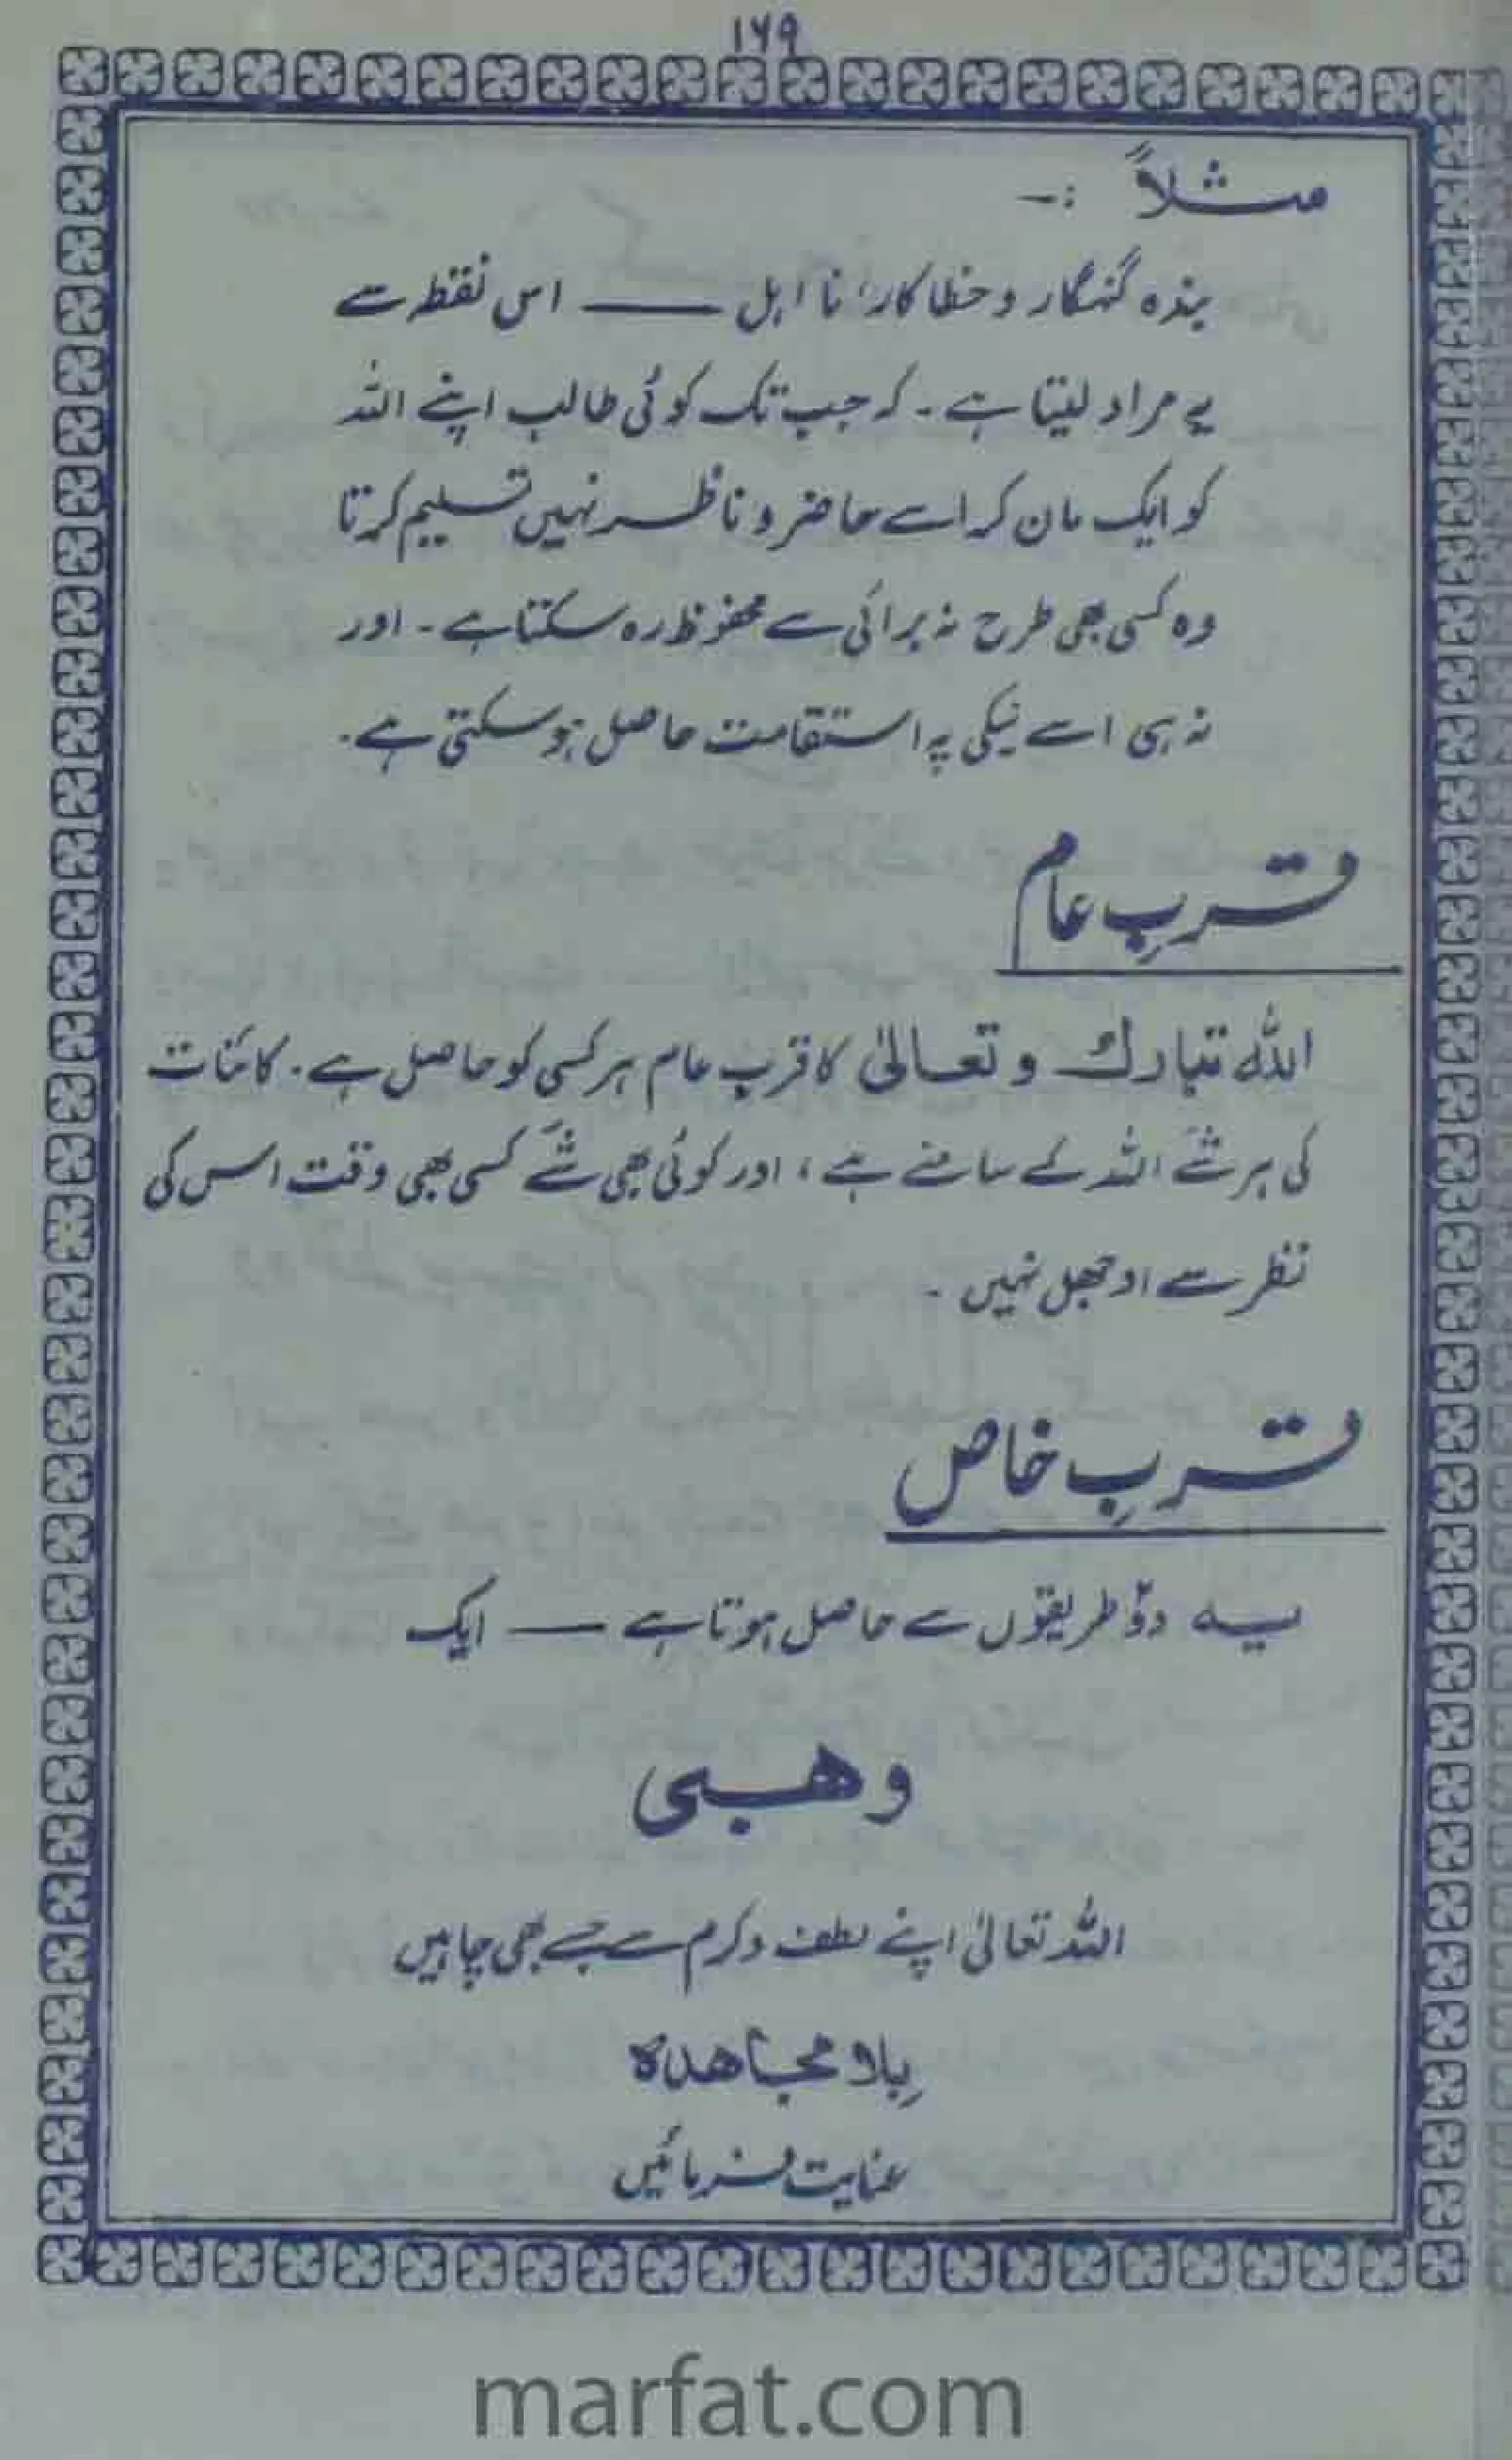 ۱۶۹
مثلاً :-
بندہ گنہگار و خطا کار، نا اہل ـــــ اس نقطہ سے
یہ مراد لیتا ہے - کہ جب تک کوئی طالب اپنے اللہ
کو ایک مان کر اسے حاضر و ناظر نہیں تسلیم کرتا
وہ کسی بھی طرح نہ برائی سے محفوظ رہ سکتا ہے - اور
نہ ہی اسے نیکی پہ استقامت حاصل ہو سکتی ہے -
قربِ عام
اللہ تبارك و تعالیٰ کا قرب عام ہر کسی کو حاصل ہے - کائنات
کی ہر شے اللہ کے سامنے ہے ، اور کوئی بھی شے کسی بھی وقت اس کی
نظر سے اوجھل نہیں -
قربِ خاص
یہ دو طریقوں سے حاصل ہوتا ہے ـــــ ایک
وھبی
اللہ تعالیٰ اپنے لطف و کرم سے جسے بھی چاہیں
بِلا مجاھدہ
عنایت فرمائیں
marfat.com